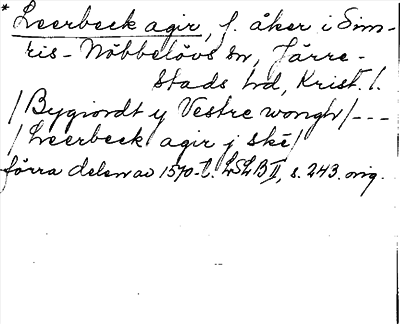 * Leerbeck agir, f. åker i Sim-
ris-Nöbbelövs sn, Järre-
stads hd, Krist. l.
/Bygiordt y Vestre wongh/---
/Leerbeck agir j ské/
förra delen av 1570-t. LSLB II, s. 243. orig.